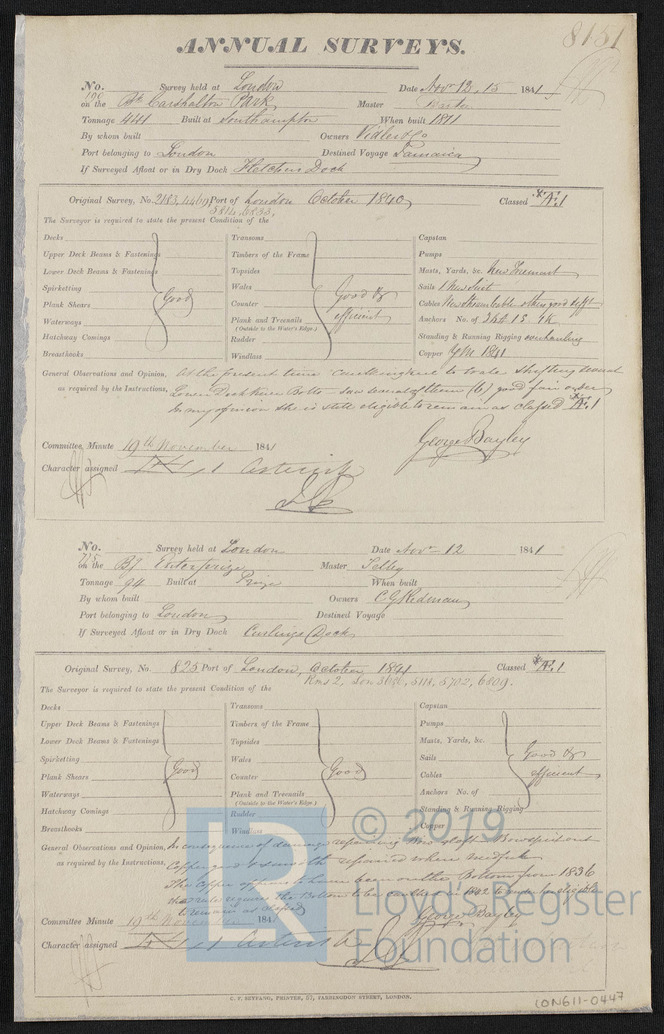 8131
ANNUAL SURVEYS.
No. 190 Survey held at London Date Nov 12, 15 1841
on the Bk Carshalton Park Master
Tonnage 441 Built at Southampton When built 1811
By whom built Owners Vidler & Co
Port belonging to London Destined Voyage Jamaica
If Surveyed Afloat or in Dry Dock Fletchers Dock
Original Survey, No. 2183, 4469 Port of London October 1840 Classed Æ.1
5814, 6835.
The Surveyor is required to state the present Condition of the
Decks
Upper Deck Beams & Fastenings
Lower Deck Beams & Fastenings
Spirketting
Plank Shears
Waterways
Hatchway Comings
Breasthooks
Good
Transoms
Timbers of the Frame
Topsides
Wales
Counter
Plank and Treenails
(Outside to the Water's Edge.)
Rudder
Windlass
Good &
efficient
Capstan
Pumps
Masts, Yards, &c. New
Sails 1 New Suit
Cables New Stream Cable others good
Anchors No. of 3 & 2 1 S 1 K
Standing & Running Rigging overhauling
Copper YM 1841
General Observations and Opinion, At the present time
as required by the Instructions, Lower Deck Knee Bolts saw several of them (6) good fair order
In my opinion she is still eligible to remain as classed Æ.1
George Bayley
Committee, Minute 19th November 1841
Character assigned 1 Asterisk
No. 715 Survey held at London Date Nov 12 1841
on the Bg Enterprize Master Selby
Tonnage 94 Built at Prize When built
By whom built Owners C G Redman
Port belonging to London Destined Voyage
If Surveyed Afloat or in Dry Dock Curlings Dock
Original Survey, No. 825 Port of London, October 1841 Classed Æ.1
Rms 2, Lon 3686, 5118, 5702, 6809.
The Surveyor is required to state the present Condition of the
Decks
Upper Deck Beams & Fastenings
Lower Deck Beams & Fastenings
Spirketting
Plank Shears
Waterways
Hatchway Comings
Breasthooks
Good
Transoms
Timbers of the Frame
Topsides
Wales
Counter
Plank and Treenails
(Outside to the Water's Edge.)
Rudder
Windlass
Good
Capstan
Pumps
Masts, Yards, &c.
Sails
Cables
Anchors No. of
Standing & Running Rigging
Copper
Good &
efficient
General Observations and Opinion, In consequence of damage repairing New Bowsprit
as required by the Instructions, Copper good & smooth repaired where requisite
The Copper appears to have been on the Bottom from 1836
the rule requires the Bottom to be in 1842 to render her eligible
to remain as classed
George Bayley
Committee Minute 19th November 1841
Character assigned 1 Asterisk
C. F. SEYFANG, PRINTER, 57, FARRINGDON STREET, LONDON.
LON611-0447
© 2019
LR
Lloyd's Register
Foundation